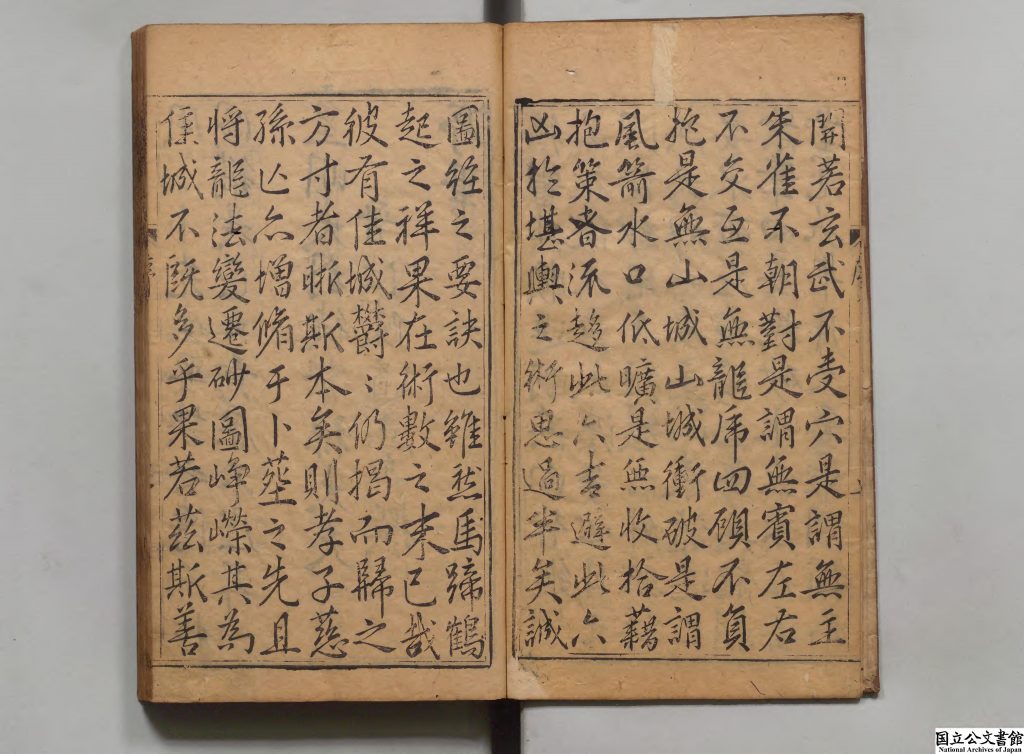 開若玄武不受穴是謂無主
朱雀不朝對是謂無賓左右
不交互是無龍虎四顧不負
抱是無山城山城衝破是謂
風箭水口低曠是無收拾藉
抱策者流趨此六吉避此六
凶於堪輿之術思過半矣誠
圖經之要訣也雖然馬蹄鶴
起之祥果在術數之末已哉
彼有佳城欝〻仍揭而歸之
方寸者晣斯本矣則孝子慈
孫亾亦增脩于卜葬之先且
將龍法變遷砂圖崢嶸其為
佳城不既多乎果若茲斯善
序
國立公文書館
National Archives of Japan